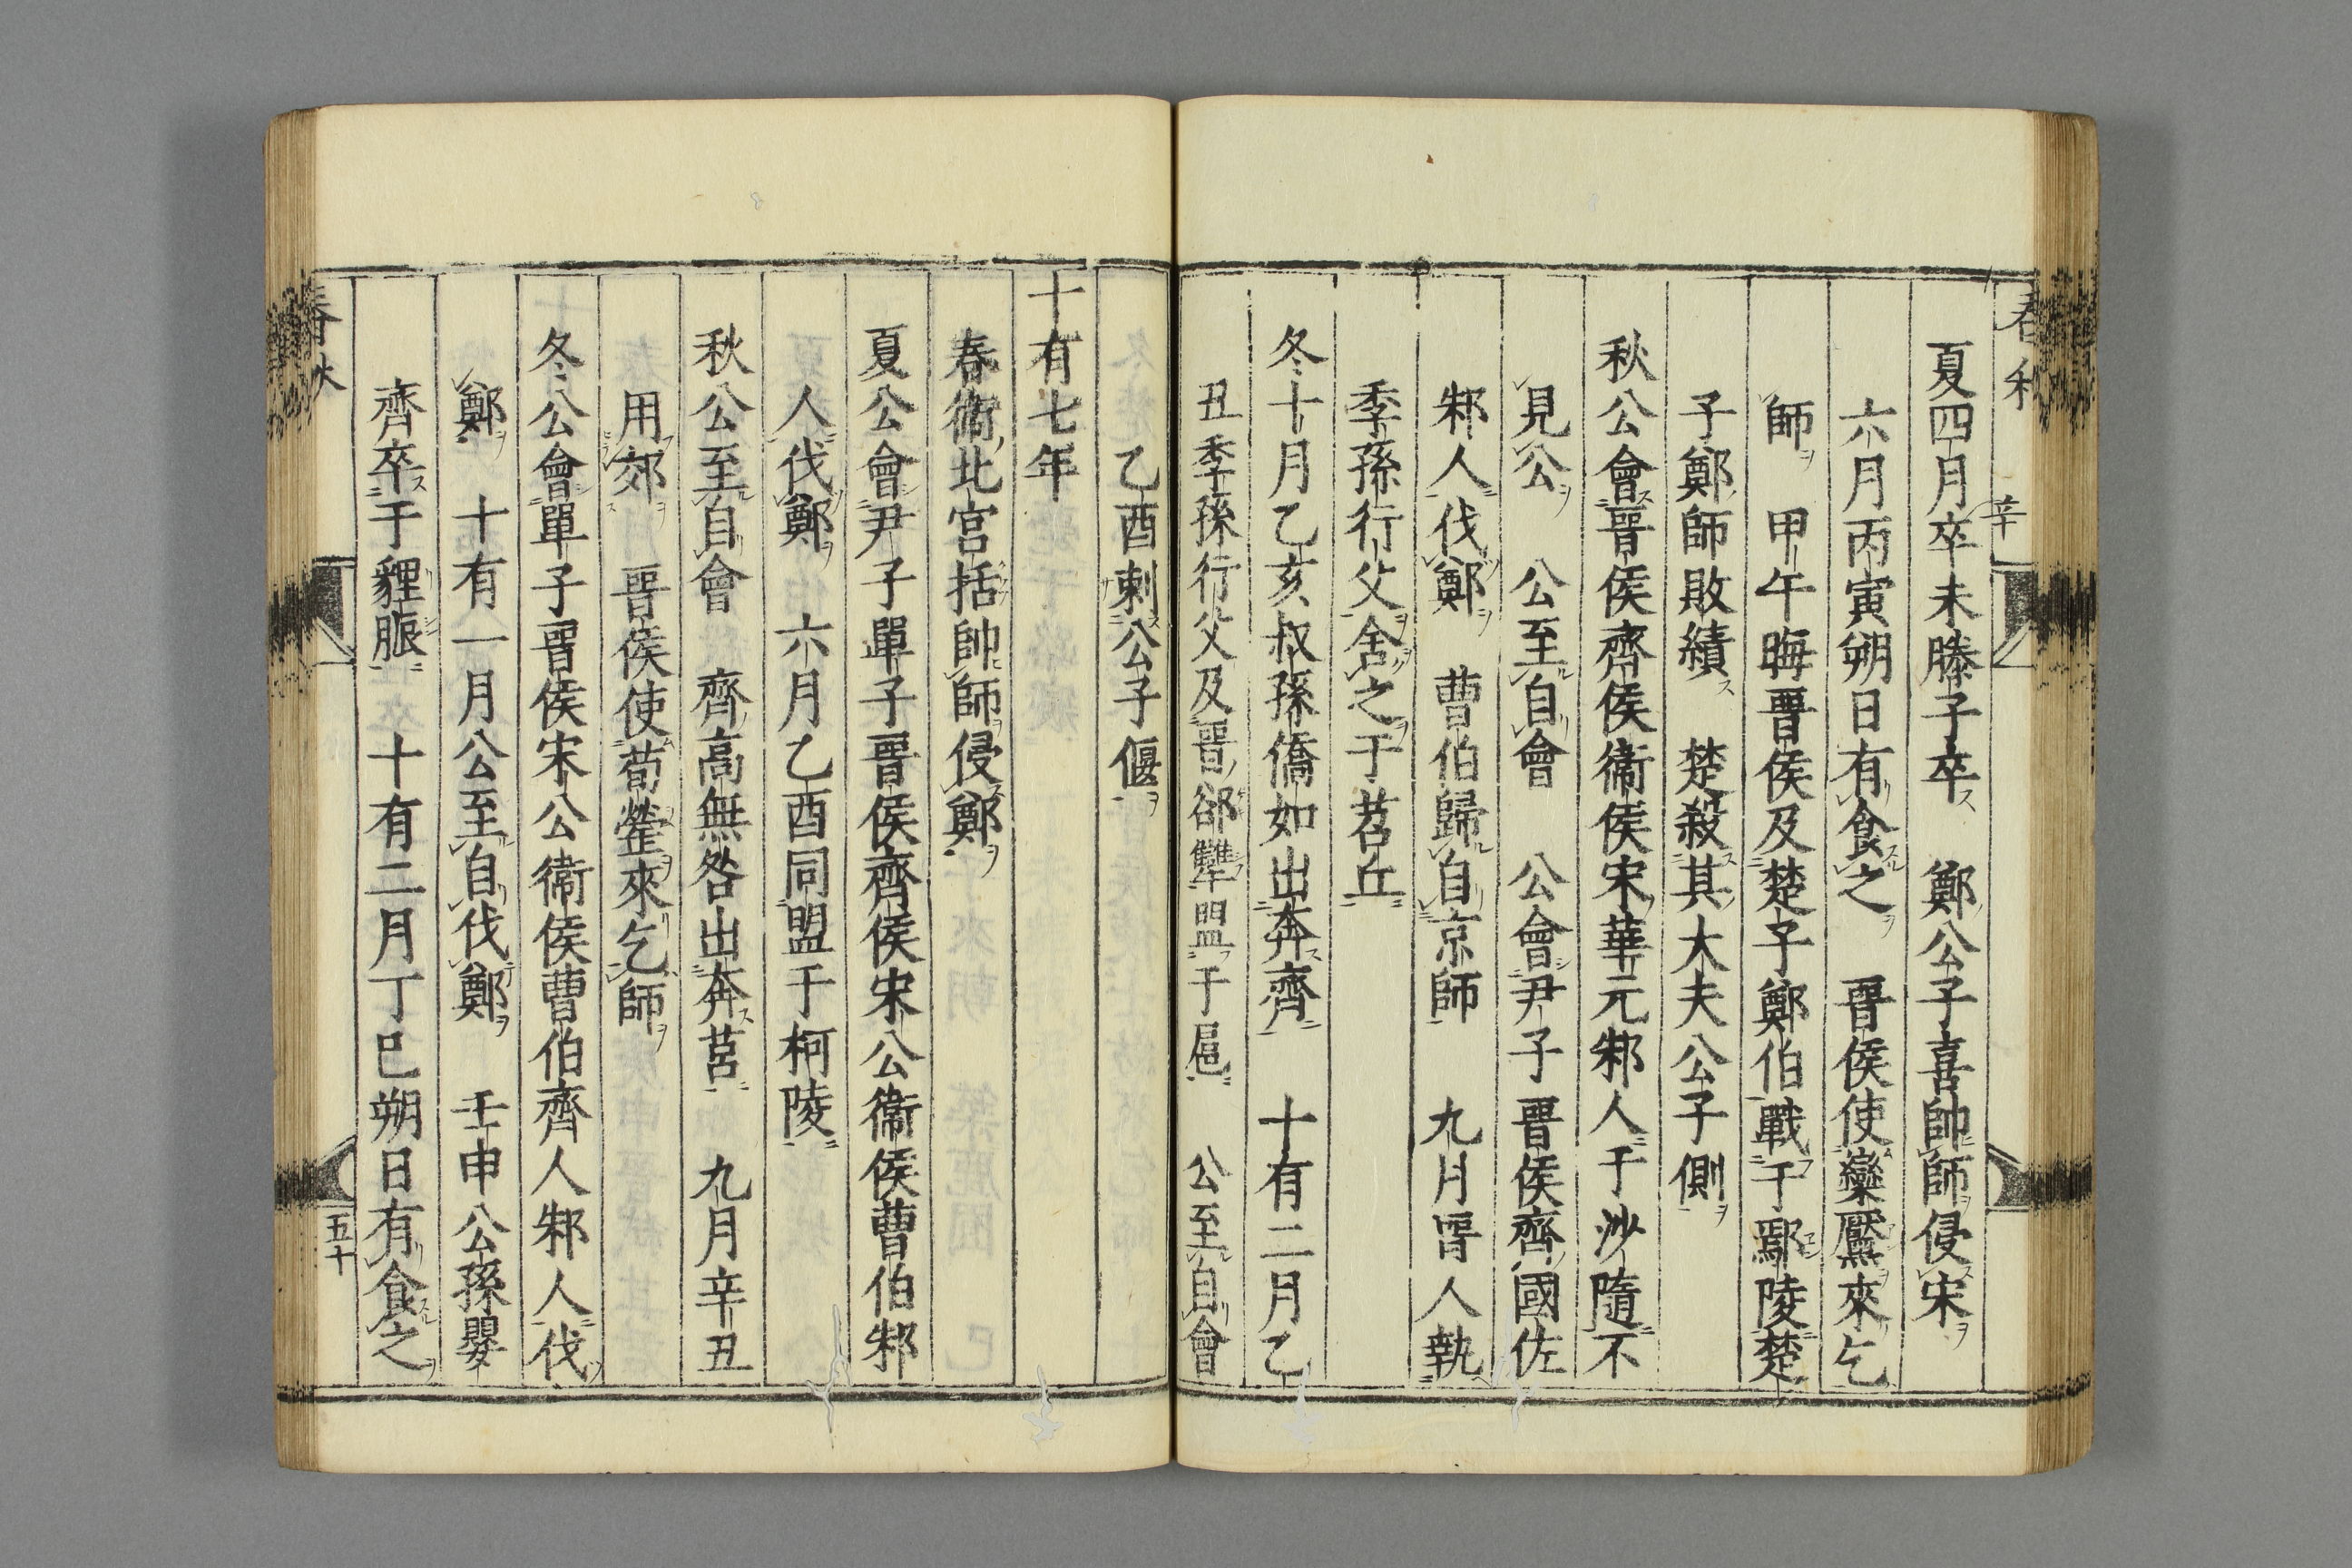 春秋
辛
夏四月卒未滕子卒　鄭公子喜帥師侵宋
六月丙寅朔日有食之　晉侯使欒黶來乞
師　甲午晦晉侯及楚子鄭伯戰于鄢陵楚
子鄭師敗績　楚殺其大夫公子側
秋公會晉侯齊侯衞侯宋華元邾人于沙隨不
見公　公至自會　公會尹子晉侯齊國佐
邾人伐鄭　曹伯歸自京師　九月晉人執
季孫行父舍之于苕丘
冬十月乙亥叔孫僑如出奔齊　十有二月乙
丑季孫行父及晉郤犨盟于扈　公至自會
乙酉刺公子偃
十有七年
春衞北宮括帥師侵鄭
夏公會尹子單子晉侯齊侯宋公衞侯曹伯邾
人伐鄭　六月乙酉同盟于柯陵
秋公至自會　齊高無咎出奔莒　九月辛丑
用郊　晉侯使荀罃來乞師
冬公會單子晉侯宋公衞侯曹伯齊人邾人伐
鄭　十有一月公至自伐鄭　壬申公孫嬰
齊卒于貍脤　十有二月丁巳朔日有食之
春秋
五十